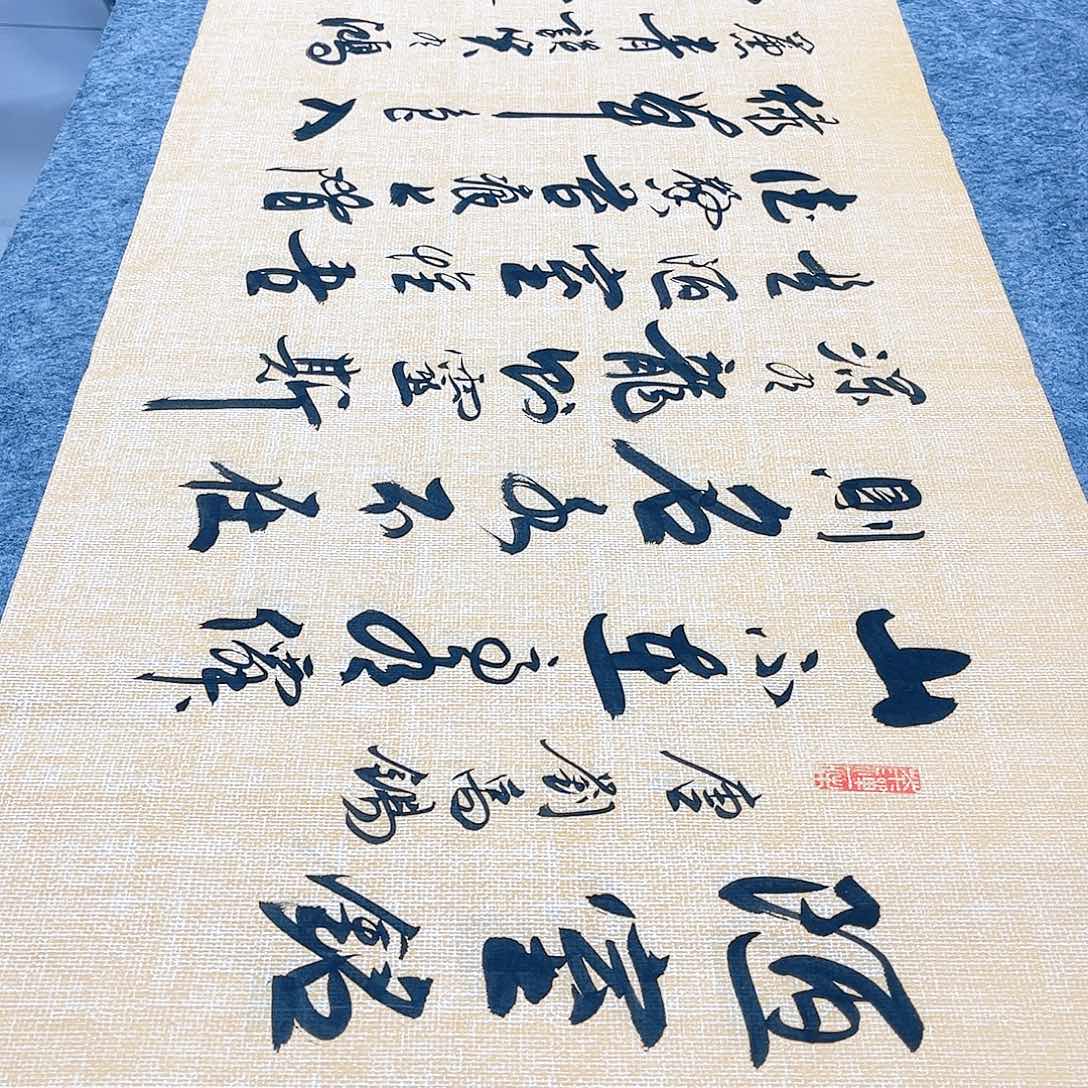 陋室銘
唐劉禹錫
山不在高有僊
則名水不在
深有龍則靈斯
是陋室惟吾
德馨苔痕上階
綠草色入
簾青談笑有鴻